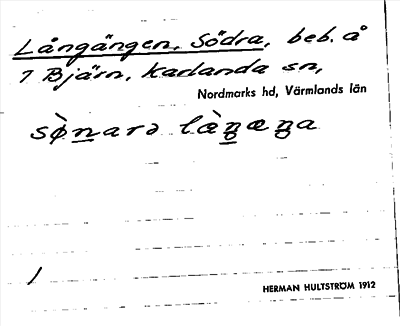 Långängen, Södra, beb. å
1 Bjärn, Karlanda sn,
Nordmarks hd, Värmlands län
sø̀narə làŋæŋa
/
HERMAN HULTSTRÖM 1912